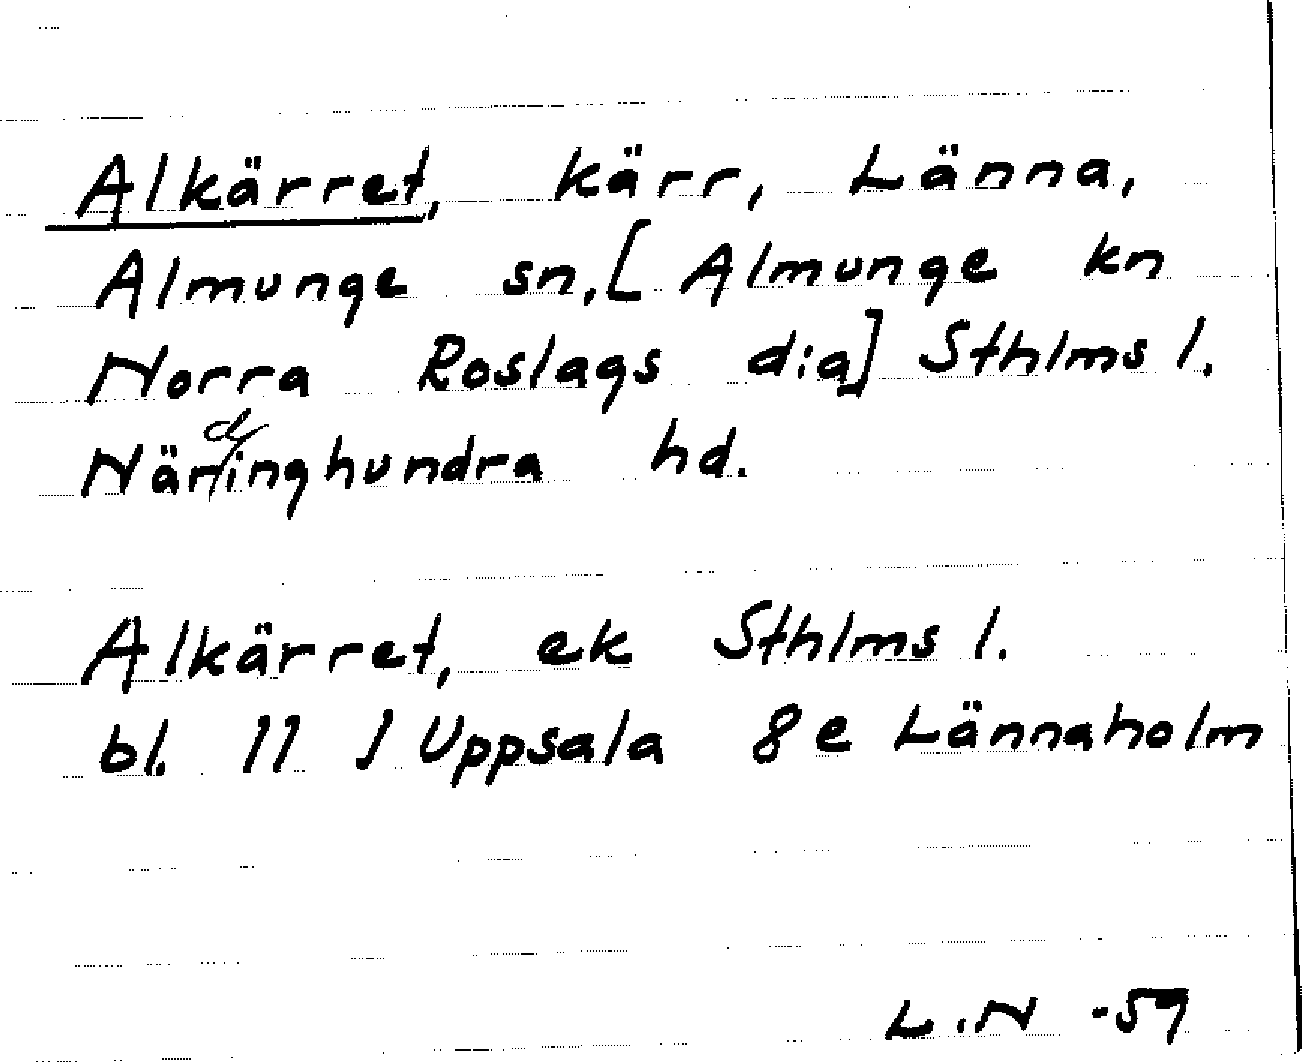 Alkärret, kärr, Länna,
Almunge sn, [Almunge kn
Norra Roslags dia] Sthlms l.
Närdinghundra hd.
Alkärret, ek Sthlms l.
bl. 11 J Uppsala 8e Lännaholm
L.N -59